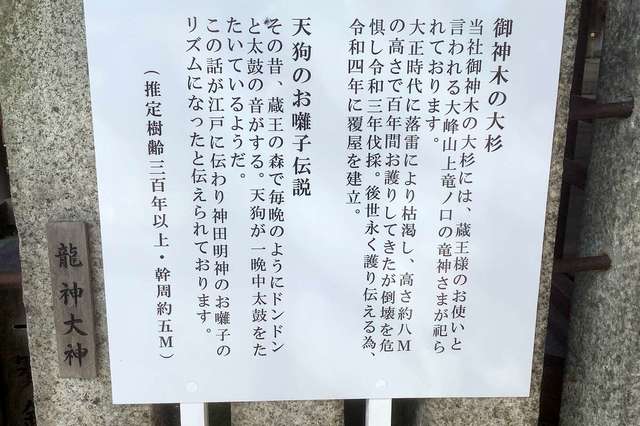 御神木の大杉
当社御神木の大杉には、蔵王様のお使いと
言われる大峰山上竜ノ口の竜神さまが祀ら
れております。
大正時代に落雷により枯渇し、高さ約八M
の高さで百年間お護りしてきたが倒壊を危
惧し令和三年伐採。後世永く護り伝える為、
令和四年に覆屋を建立。
天狗のお囃子伝説
その昔、蔵王の森で毎晩のようにドンドン
と太鼓の音がする。天狗が一晩中太鼓をた
たいているようだ。
この話が江戸に伝わり神田明神のお囃子の
リズムになったと伝えられております。
（推定樹齢三百年以上・幹周約五M）
龍神大神